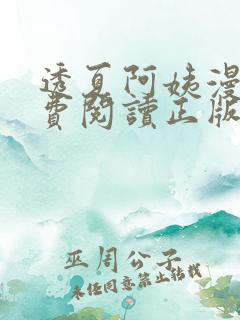 透夏阿姨漫
費閱讀正版
巫周公子
未经同意禁止转载